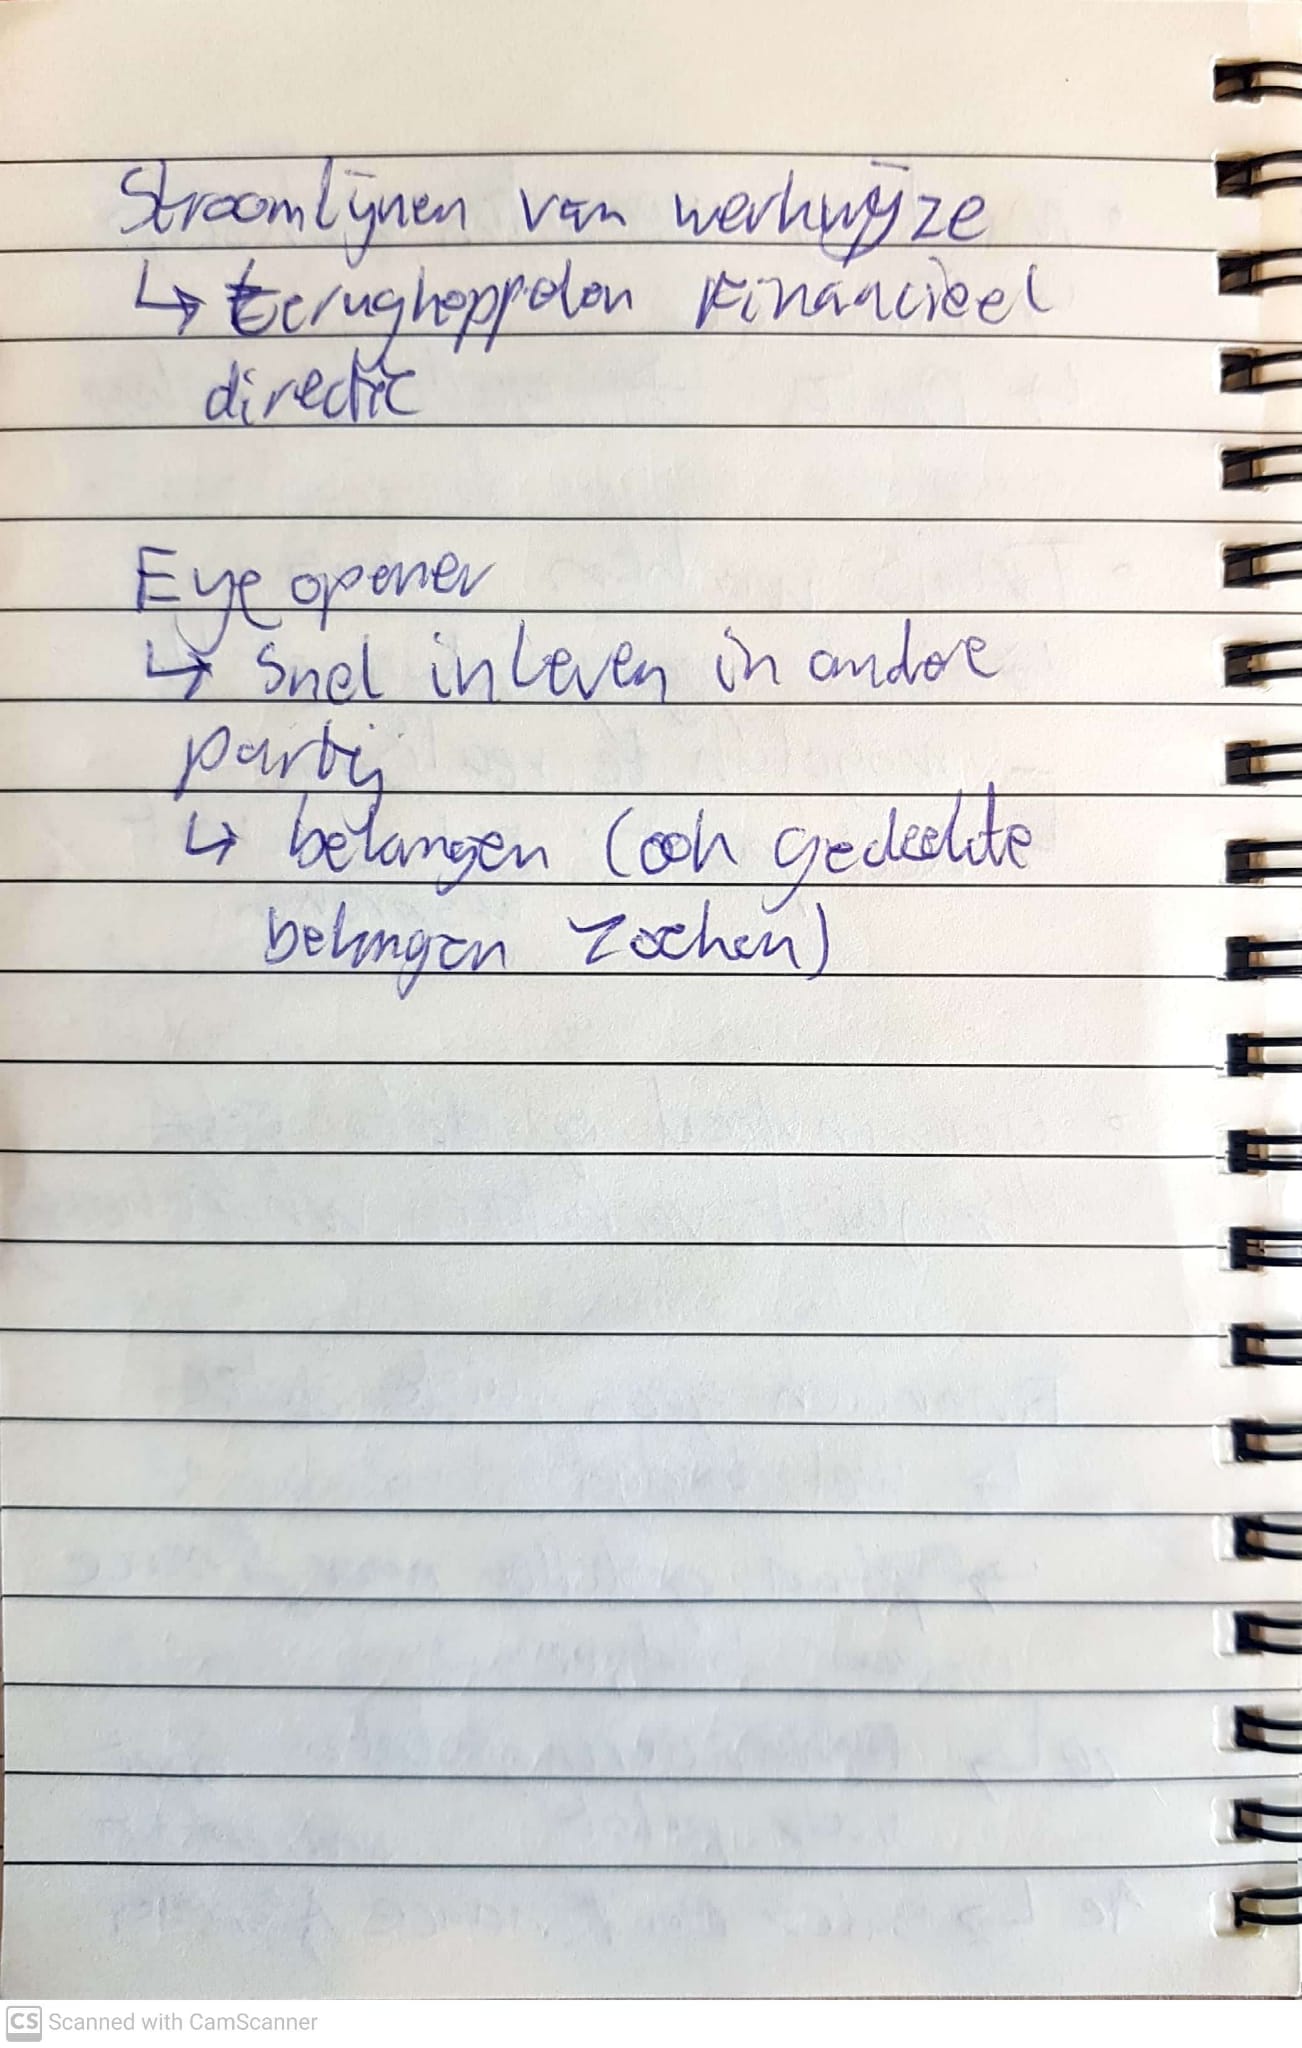 Stroomlijnen van werkwijze
↳ terugkoppelen Financieel
directie
Eye opener
↳ Snel inleven in andere
partij
↳ belangen (ook gedeelde
belangen zoeken)
CS Scanned with CamScanner